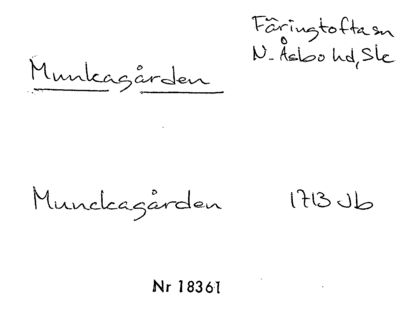 Färingtofta sn
N. Åsbo hd, Sk
Munkagården
Munckagården 1713 Jb
Nr 18361